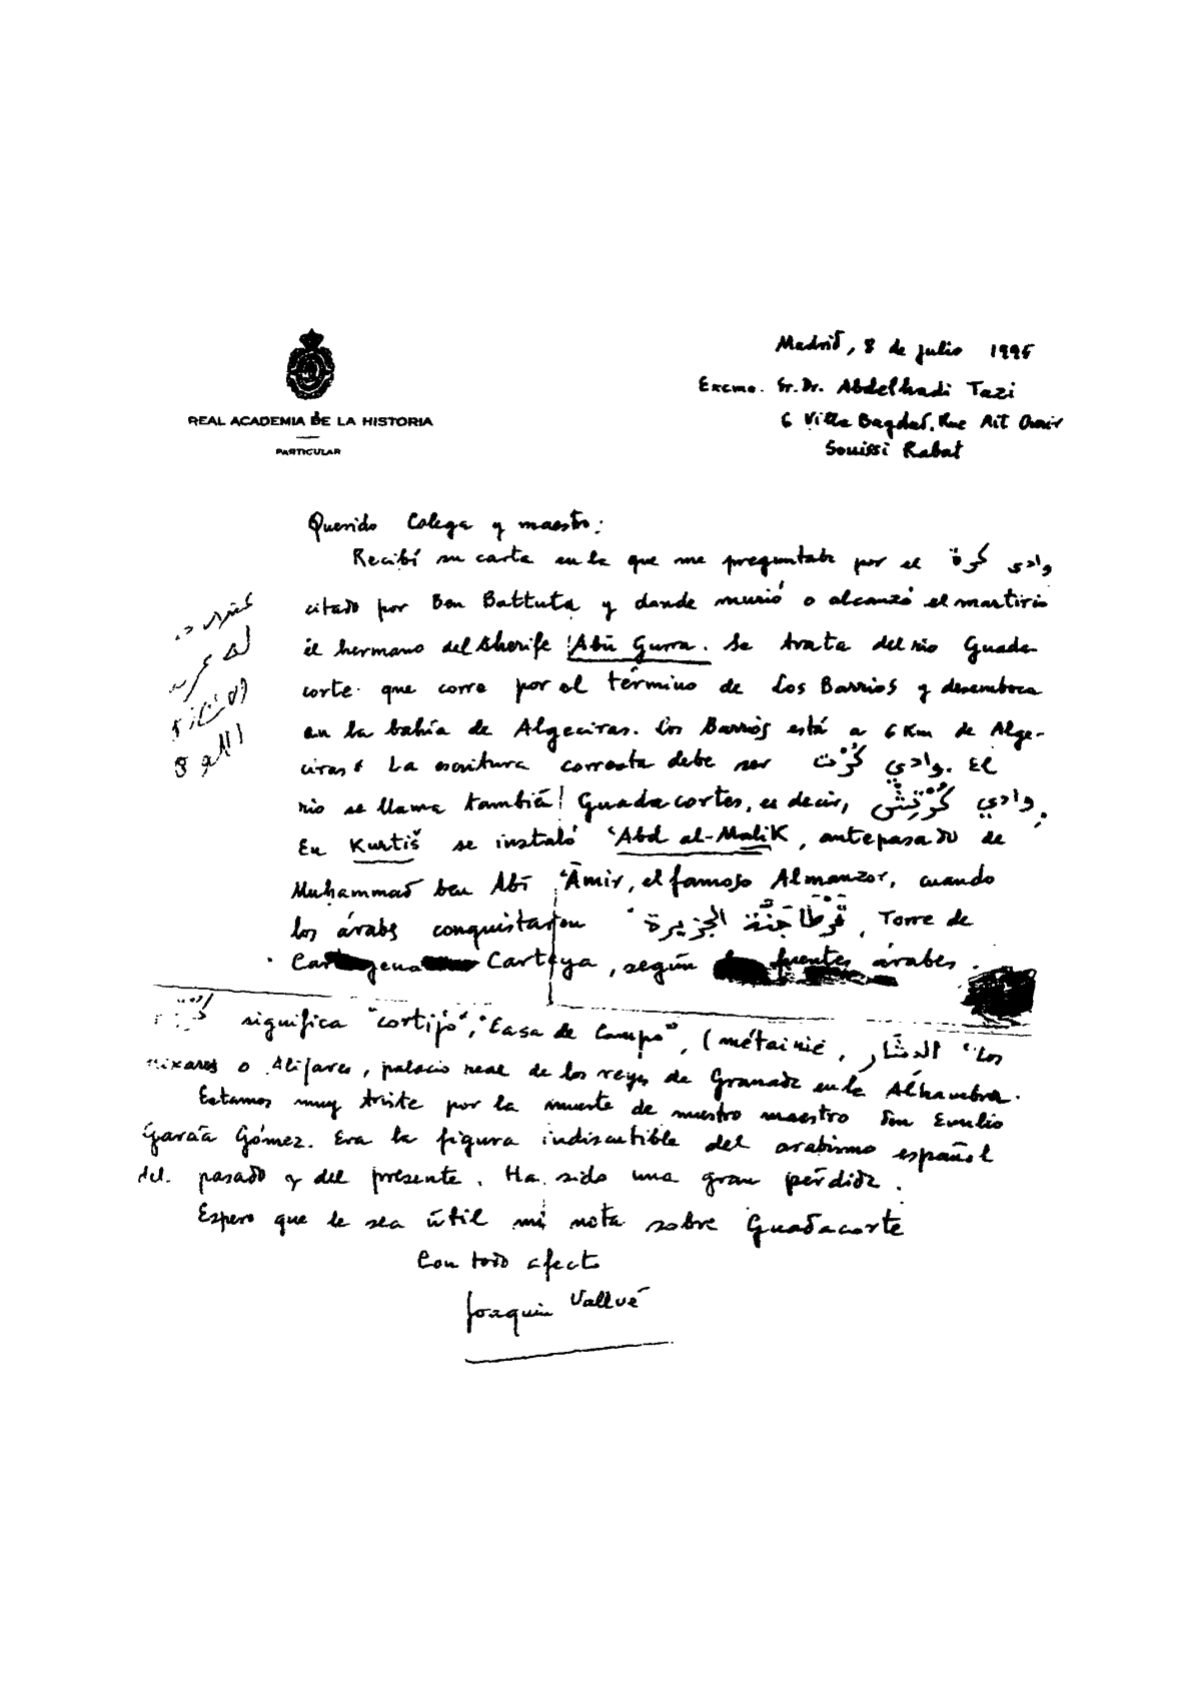 REAL ACADEMIA DE LA HISTORIA
PARTICULAR
Madrid, 8 de julio 1995
Excmo. Sr. Dr. Abdelhadi Tazi
6 Villa Bagdad, Rue Ait
Souissi Rabat
Querido Colega y maestro:
Recibí su carta en la que me preguntaba por el وادي كرة
citado por Ben Battuta y donde murió o alcanzó el martirio
el hermano del Sherife Abū Gurra. Se trata del rio Guada-
corte que corre por el término de Los Barrios y desemboca
en la bahía de Algeciras. Los Barrios está a 6 Km de Alge-
ciras. La escritura correcta debe ser وادي كُرْت. El
rio se llama también Guadacortes, es decir, وادي كُرْتِش.
En Kurtiš se instaló ʿAbd al-Malik, antepasado de
Muhammad ben Abī ʿĀmir, el famoso Almanzor, cuando
los árabes conquistaron قَرْطَاجَنَّة الجزيرة, Torre de
Carteya, según fuentes árabes.
significa "cortijo", "Casa de Campo", (métairie, الدشار "Los
o Alijares, palacio real de los reyes de Granada en la Alhambra.
Estamos muy triste por la muerte de nuestro maestro Don Emilio
García Gómez. Era la figura indiscutible del arabismo español
del pasado y del presente. Ha sido una gran pérdida.
Espero que le sea útil mi nota sobre Guadacorte
Con todo afecto
Joaquín Vallvé